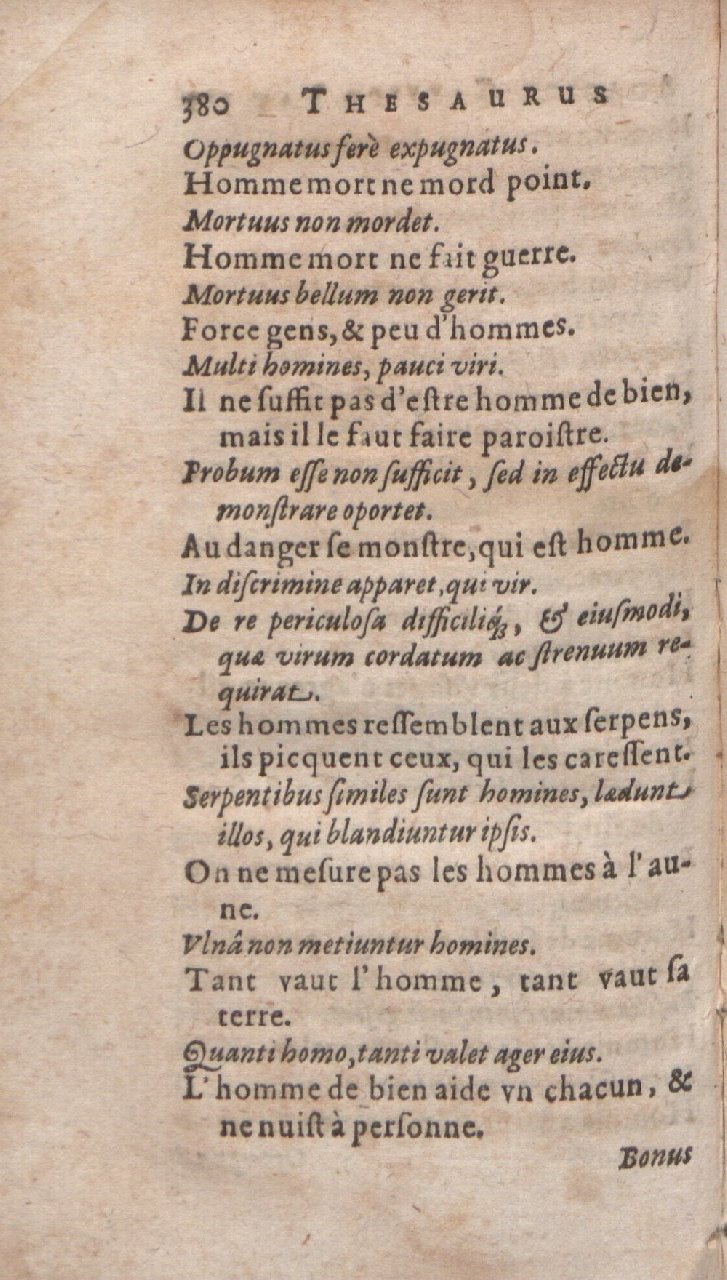 380 THESAURUS
Oppugnatus ferè expugnatus.
Homme mort ne mord point.
Mortuus non mordet.
Homme mort ne fait guerre.
Mortuus bellum non gerit.
Force gens, & peu d'hommes.
Multi homines, pauci viri.
Il ne ſuffit pas d'eſtre homme de bien,
mais il le faut faire paroiſtre.
Probum eſſe non ſufficit, ſed in effectu de-
monſtrare oportet.
Au danger ſe monſtre, qui eſt homme.
In diſcrimine apparet, qui vir.
De re periculoſa difficiliq́ꝫ, & eiuſmodi,
quæ virum cordatum ac ſtrenuum re-
quirat.
Les hommes reſſemblent aux ſerpens,
ils picquent ceux, qui les careſſent.
Serpentibus ſimiles ſunt homines, lædunt
illos, qui blandiuntur ipſis.
On ne meſure pas les hommes à l'au-
ne.
Vlnâ non metiuntur homines.
Tant vaut l'homme, tant vaut ſa
terre.
Quanti homo, tanti valet ager eius.
L'homme de bien aide vn chacun, &
ne nuiſt à perſonne.
Bonus